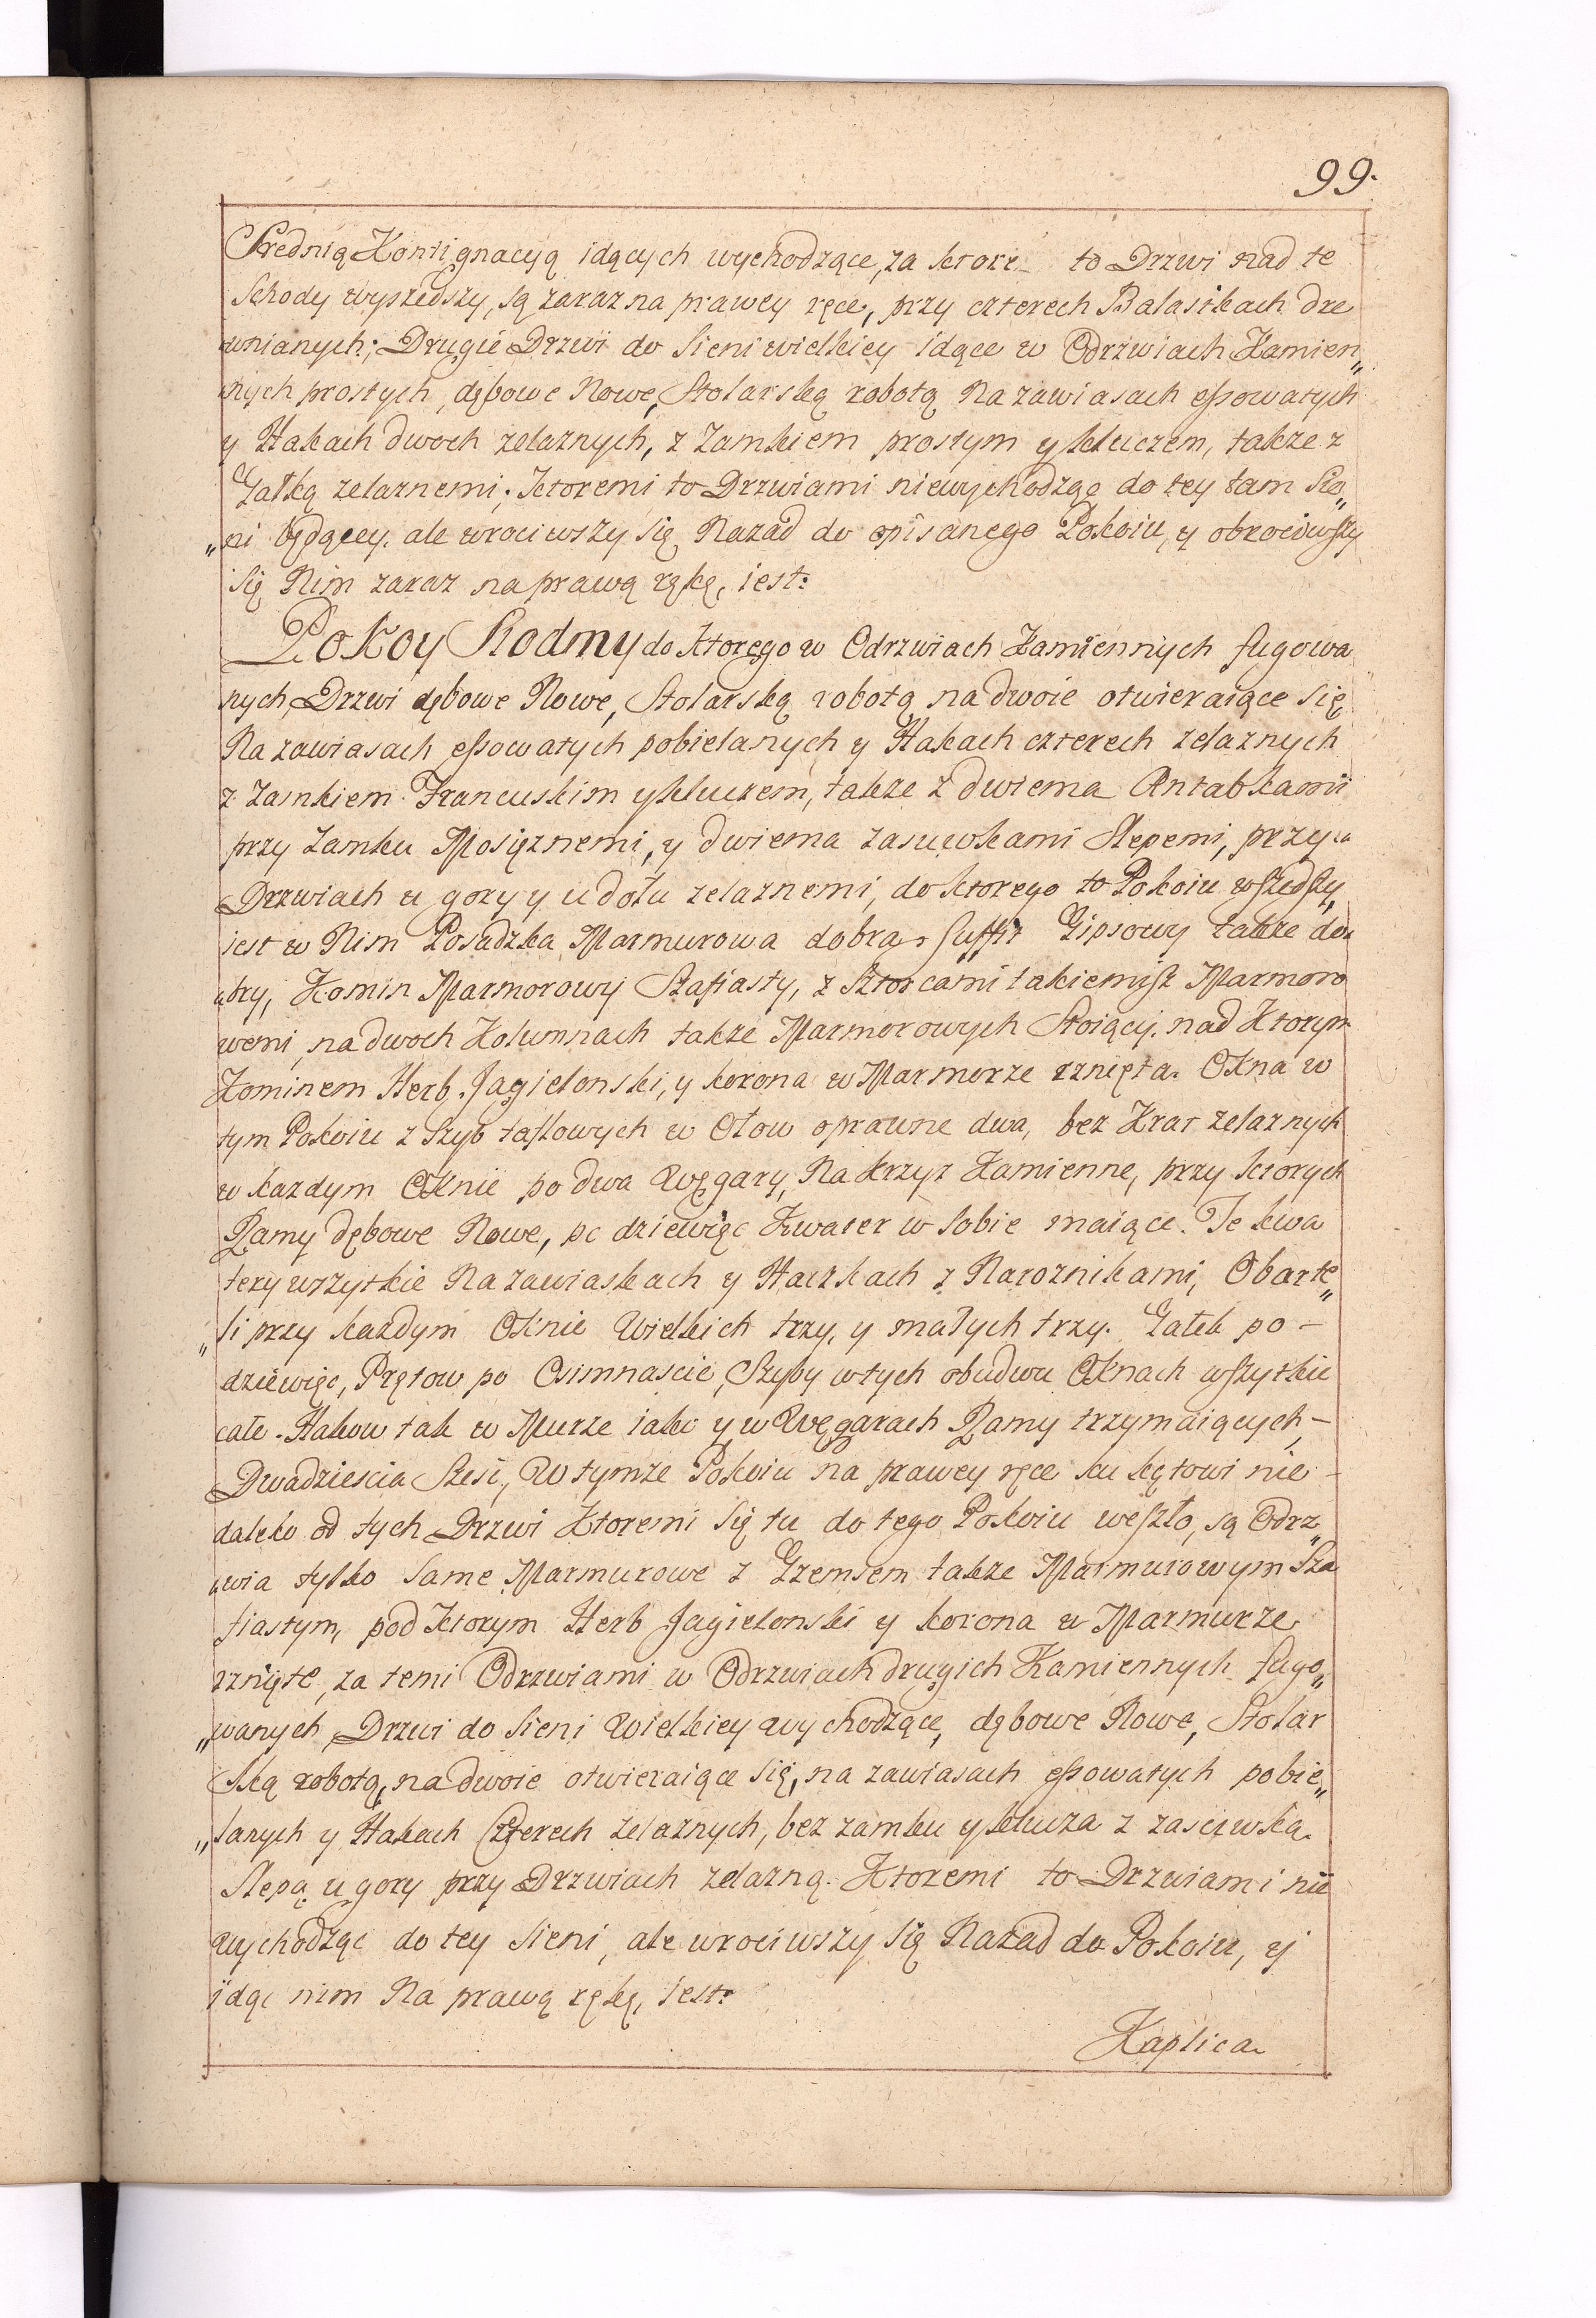 99.
Srednią Kontignacyą idących wychodzące, za ktore to Drzwi nad te
Schody wyszedszy, są zaraz na prawey ręce, przy czterech Balaskach dre
wnianych; Drugie Drzwi do Sieni wielkiey idące w Odrzwiach Kamien„
nych prostych, dębowe Nowe, Stolarską robotą Na zawiasach essowatych
y Hakach dwoch zelaznych, z Zamkiem prostym y kluczem, takze z
Gałką zelaznemi. Ktoremi to Drzwiami niewychodząc do tey tam Sie„
„ni będącey, ale wrociwszy się Nazad do opisanego Pokoiu, y obrociwszy
się Nim zaraz na prawą rękę, iest:
Pokoy Siodmy do ktorego w Odrzwiach Kamiennych fugowa
nych, Drzwi dębowe Nowe, Stolarską robotą na dwoie otwieraiące się
Na zawiasach essowatych pobielanych y Hakach czterech zelaznych
z Zamkiem Francuskim y kluczem, takze z dwiema Antabkami
przy Zamku Mosięznemi, y dwiema zasuwkami Slepemi, przy„
Drzwiach u gory y u dołu zelaznemi, do ktorego to Pokoiu wszedszy,
iest w Nim Posadzka Marmurowa dobra, Suffit Gipsowy takze do„
„bry, Komin Marmorowy Szafiasty, z Sztorcami takiemisz Marmoro
wemi, na dwoch Kolumnach takze Marmorowych Stoiący, nad Ktorym
Kominem Herb Jagielonski, y korona w Marmorze rznięta. Okna w
tym Pokoiu z Szyb taflowych w Ołow oprawne dwa, bez Krat zelaznych
w kazdym Oknie po dwa Węgary, Na krzyz Kamienne, przy ktorych
Ramy dębowe Nowe, po dziewięc Kwater w sobie maiące. Te kwa
tery wszytkie Na zawiaskach y Haczkach z Naroznikami, Obartę„
„li przy kazdym Oknie Wielkich trzy, y małych trzy. Gałek po –
dziewięc, Prętow po Osimnascie, Szyby w tych obudwu Oknach wszytkie
całe. Hakow tak w Murze iako y w Węgarach Ramy trzymaiących, –
Dwadziescia Szesc, W tymze Pokoiu na prawey ręce ku kątowi nie –
daleko od tych Drzwi Ktoremi się tu do tego Pokoiu weszło, są Odrz„
„wia tylko same Marmurowe z Gzemsem takze Marmurowym Sza
fiastym, pod ktorym Herb Jagielonski y korona w Marmurze
rznięte, za temi Odrzwiami w Odrzwiach drugich Kamiennych fugo„
„wanych Drzwi do Sieni Wielkiey wychodzące, dębowe Nowe, Stolar
ską robotą, na dwoie otwieraiące się, na zawiasach essowatych pobie„
„lanych y Hakach Czterech zelaznych, bez zamku y klucza z zasuwką
Slepą u gory przy Drzwiach zelazną. Ktoremi to Drzwiami nie
wychodząc do tey Sieni, ale wrociwszy się Nazad do Pokoiu, y
idąc nim Na prawą rękę, iest:
Kaplica